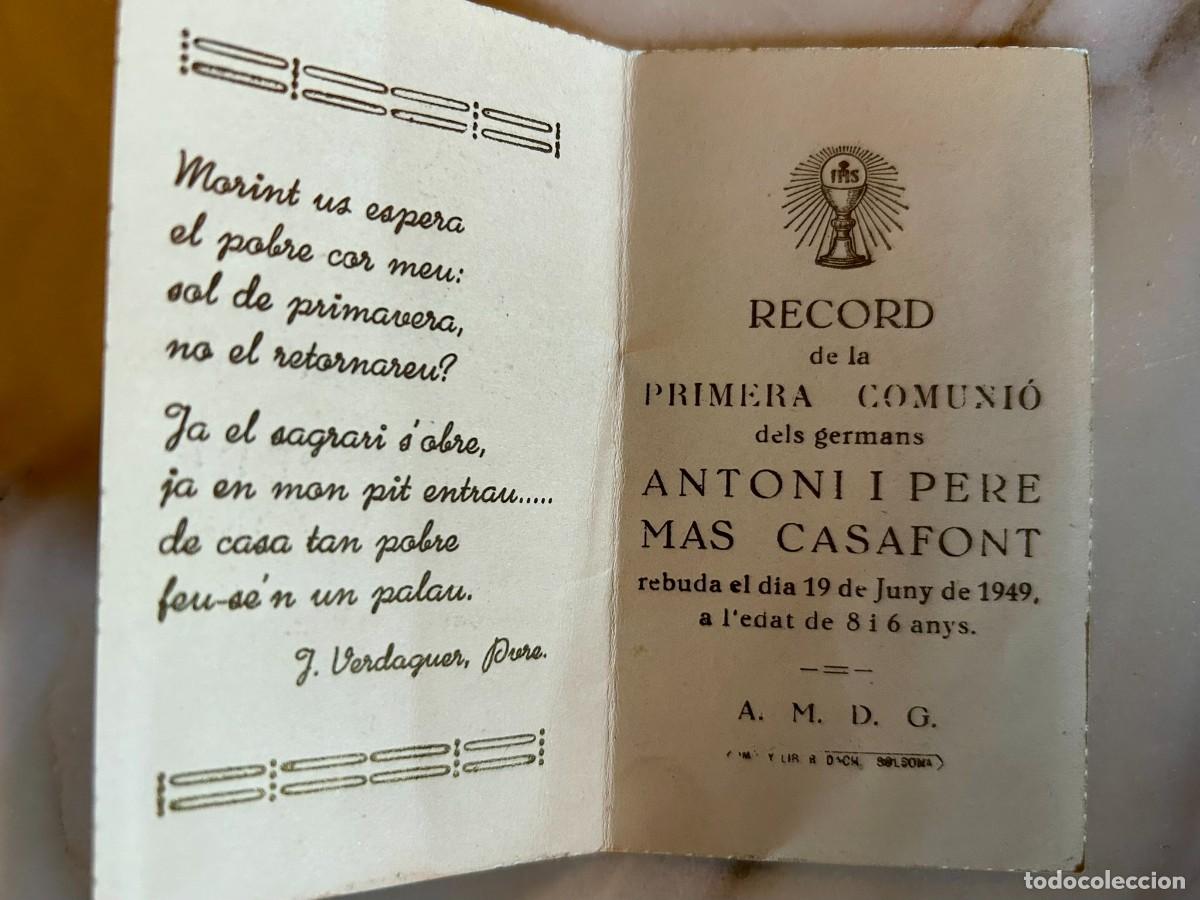 Morint us espera
el pobre cor meu:
sol de primavera,
no el retornareu?
Ja el sagrari s'obre,
ja en mon pit entrau.....
de casa tan pobre
feu-sé'n un palau.
J. Verdaguer, Pvre.
IHS
RECORD
de la
PRIMERA COMUNIÓ
dels germans
ANTONI I PERE
MAS CASAFONT
rebuda el dia 19 de Juny de 1949,
a l'edat de 8 i 6 anys.
A. M. D. G.
Y SOLSONA
todocoleccion